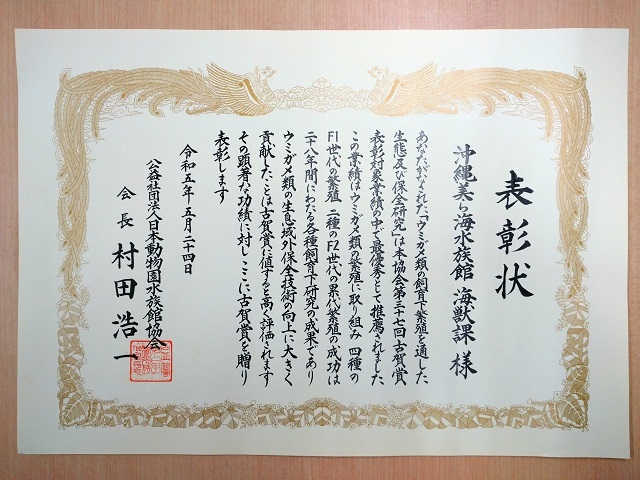 表彰状
沖縄美ら海水族館 海獣課 様
あなたがなされた「ウミガメ類の飼育下繁殖を通した
生態及び保全研究」は本協会第三十七回古賀賞
表彰対象業績の中で最優秀として推薦されました
この業績はウミガメ類の繁殖に取り組み 四種の
F1世代の繁殖 二種のF2世代の累代繁殖の成功は
二十八年間にわたる各種飼育下研究の成果であり
ウミガメ類の生息域外保全技術の向上に大きく
貢献したことは古賀賞に値すると高く評価されます
その顕著な功績に対しここに古賀賞を贈り
表彰します
令和五年五月二十四日
公益社団法人日本動物園水族館協会
会長 村田浩一